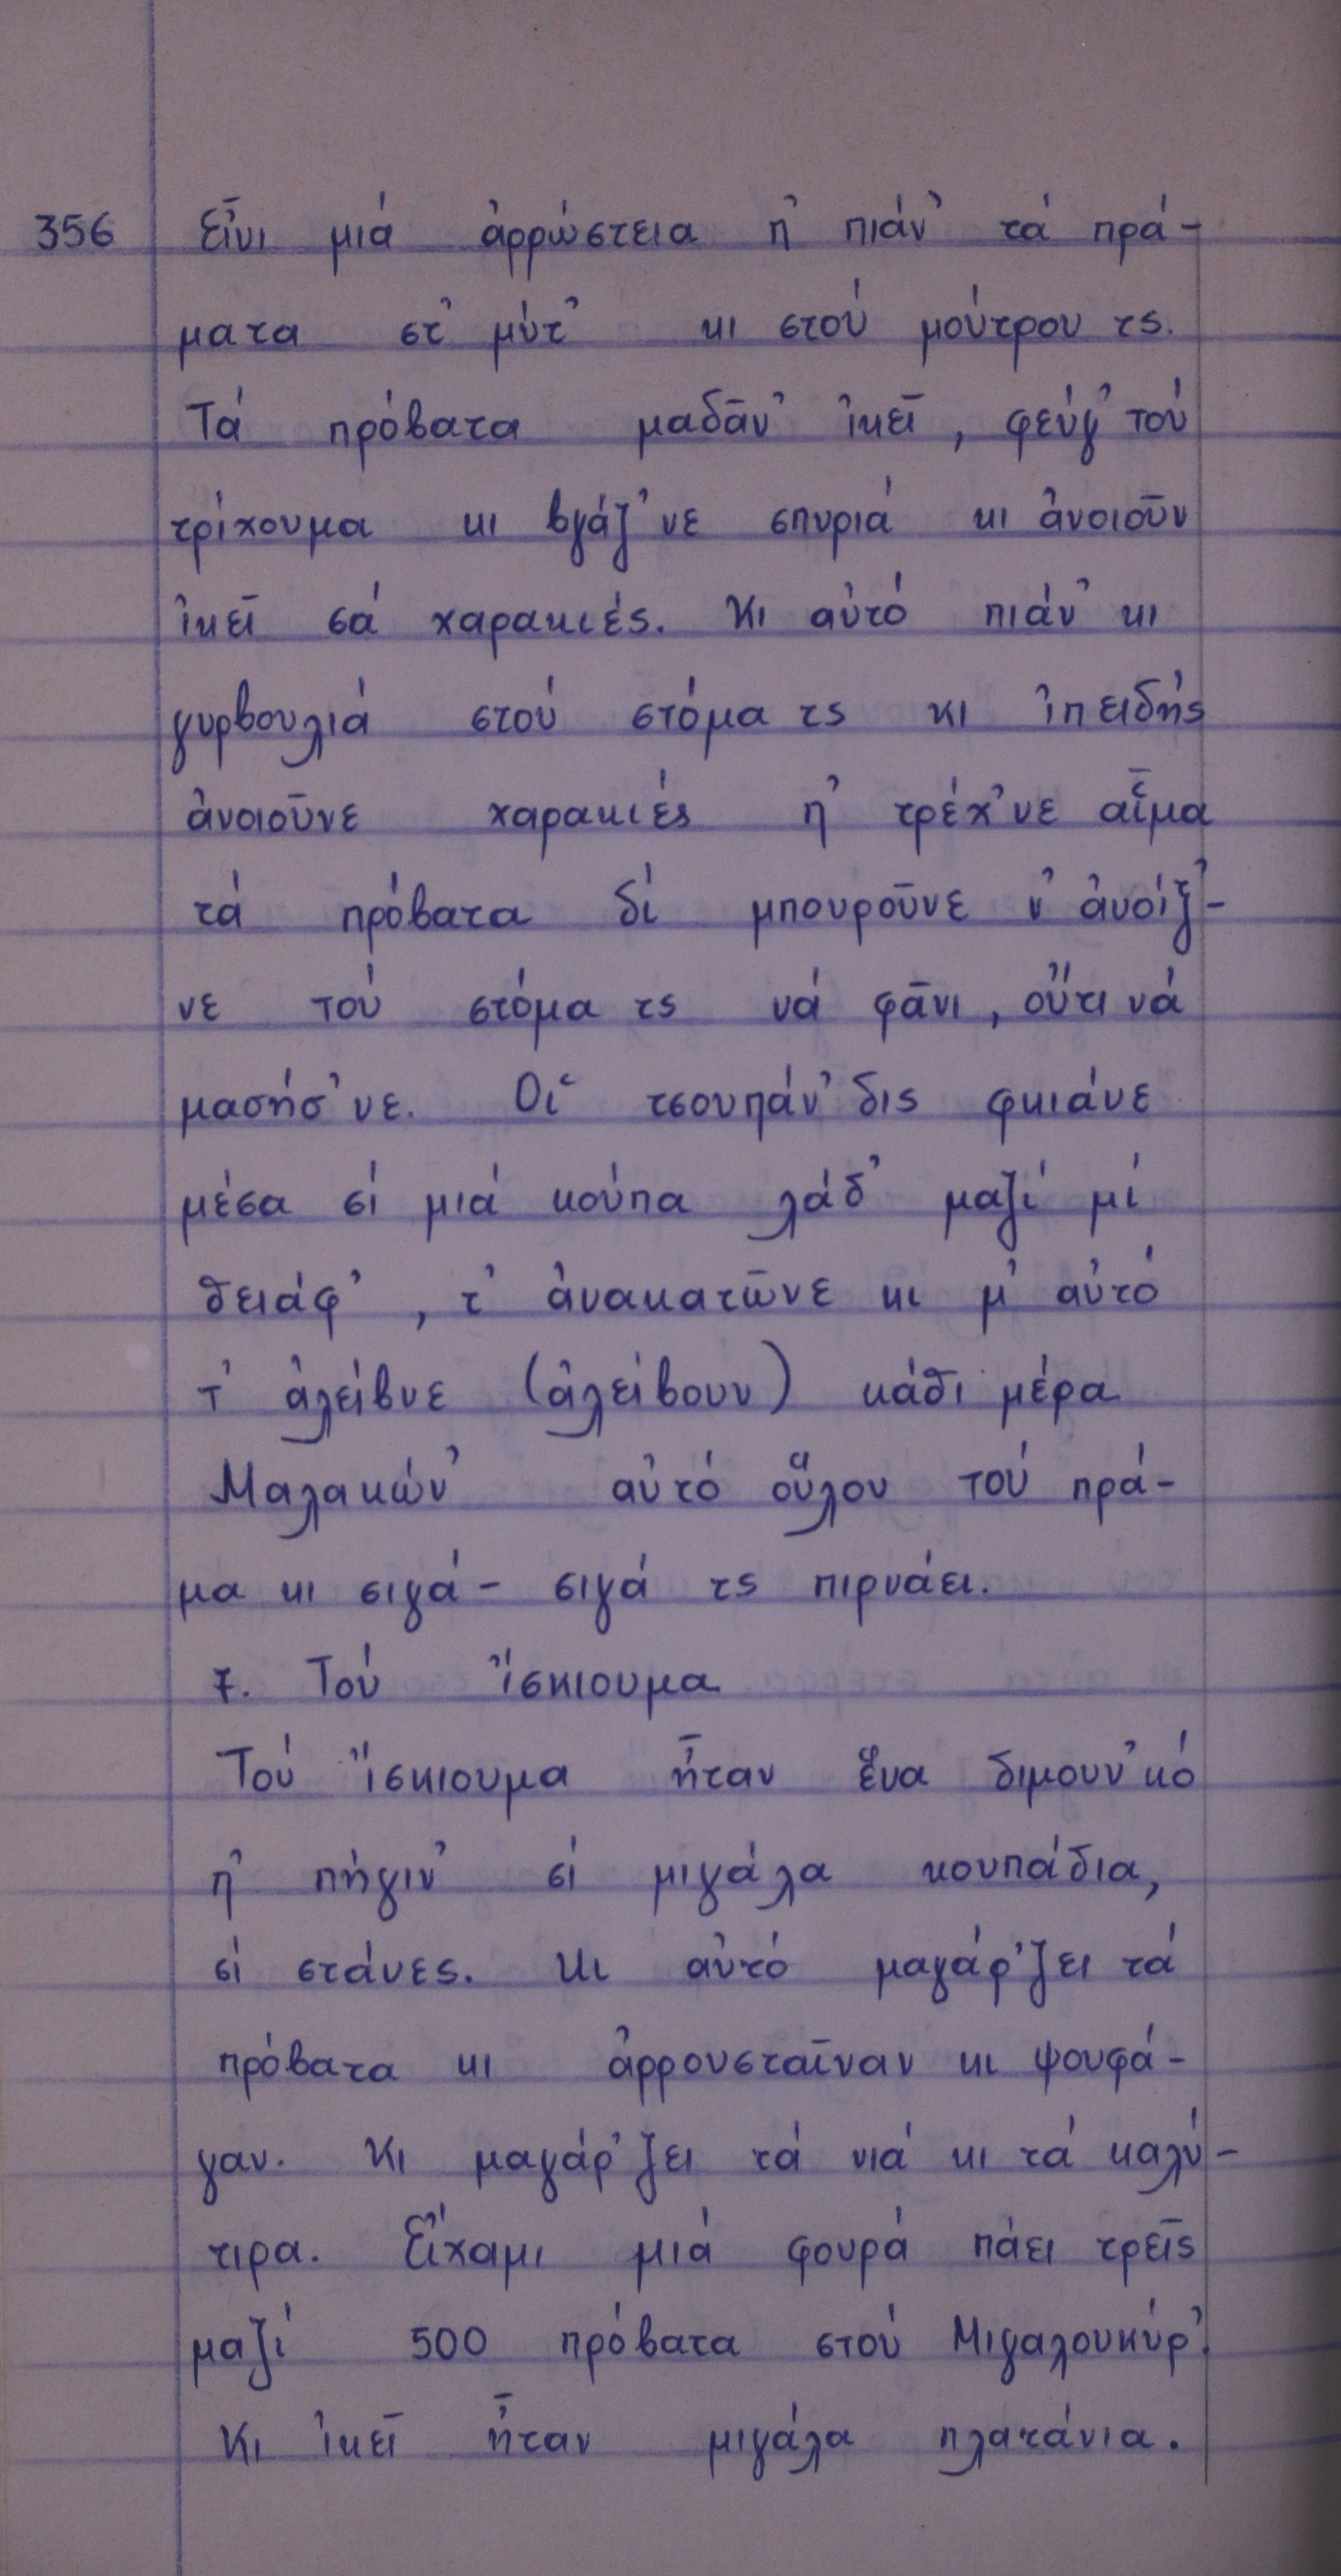 356 Εἶνι μιά ἀρρώστεια π᾽ πιάν᾽ τά πρά-
ματα στ᾽ μύτ᾽ κι στού μούτρου τς.
Τά πρόβατα μαδᾶν᾽ ἰκεῖ, φεύγ᾽ τού
τρίχουμα κι βγάζ᾽νε σπυριά κι ἀνοιοῦν
ἰκεῖ σά χαρακιές. Κι αὐτό πιάν᾽ κι
γυρβουλιά στού στόμα τς κι ἰπειδής
ἀνοιοῦνε χαρακιές π᾽ τρέχ᾽νε αἷμα
τά πρόβατα δί μπουροῦνε ν᾽ ἀνοίξ᾽-
νε τού στόμα τς νά φᾶνι, οὔτι νά
μασήσ᾽νε. Οἱ τσουπάν᾽δις φκιάνε
μέσα σί μιά κούπα λάδ᾽ μαζί μί
θειάφ᾽, τ᾽ ἀνακατῶνε κι μ᾽ αὐτό
τ᾽ ἀλείβνε (ἀλείβουν) κάθι μέρα
Μαλακών᾽ αὐτό οὕλου τού πρά-
μα κι σιγά- σιγά τς πιρνάει.
7. Τού ἴσκιουμα
Τού ἴσκιουμα ἦταν ἕνα διμουν᾽κό
π᾽ πήγιν᾽ σί μιγάλα κουπάδια,
σί στάνες. Κι αὐτό μαγάρ᾽ζει τά
πρόβατα κι ἀρρουσταῖναν κι ψουφά-
γαν. Κι μαγάρ᾽ζει τά νιά κι τά καλύ-
τιρα. Εἴχαμι μιά φουρά πάει τρεῖς
μαζί 500 πρόβατα στού Μιγαλουκύρ᾽.
Κι ἰκεῖ ἦταν μιγάλα πλατάνια.